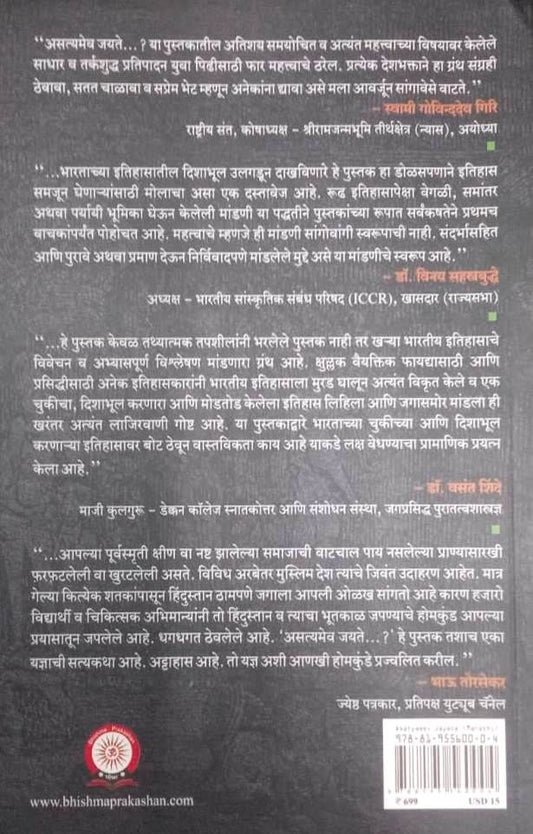 “असत्यमेव जयते...? या पुस्तकातील अतिशय समयोचित व अत्यंत महत्त्वाच्या विषयावर केलेले
साधार व तर्कशुद्ध प्रतिपादन युवा पिढीसाठी फार महत्त्वाचे ठरेल. प्रत्येक देशभक्ताने हा ग्रंथ संग्रही
ठेवावा, सतत चाळावा व सप्रेम भेट म्हणून अनेकांना द्यावा असे मला आवर्जून सांगावेसे वाटते.”
– स्वामी गोविन्ददेव गिरि
राष्ट्रीय संत, कोषाध्यक्ष – श्रीरामजन्मभूमि तीर्थक्षेत्र (न्यास), अयोध्या
“...भारताच्या इतिहासातील दिशाभूल उलगडून दाखविणारे हे पुस्तक हा डोळसपणाने इतिहास
समजून घेणाऱ्यांसाठी मोलाचा असा एक दस्तावेज आहे. रूढ इतिहासापेक्षा वेगळी, समांतर
अथवा पर्यायी भूमिका घेऊन केलेली मांडणी या पद्धतीने पुस्तकांच्या रूपात सर्वंकषतेने प्रथमच
वाचकांपर्यंत पोहोचत आहे. महत्वाचे म्हणजे ही मांडणी सांगोवांगी स्वरूपाची नाही. संदर्भासहित
आणि पुरावे अथवा प्रमाण देऊन निर्विवादपणे मांडलेले मुद्दे असे या मांडणीचे स्वरूप आहे.”
– डॉ. विनय सहस्रबुद्धे
अध्यक्ष – भारतीय सांस्कृतिक संबंध परिषद (ICCR), खासदार (राज्यसभा)
“...हे पुस्तक केवळ तथ्यात्मक तपशीलांनी भरलेले पुस्तक नाही तर खऱ्या भारतीय इतिहासाचे
विवेचन व अभ्यासपूर्ण विश्लेषण मांडणारा ग्रंथ आहे. क्षुल्लक वैयक्तिक फायद्यासाठी आणि
प्रसिद्धीसाठी अनेक इतिहासकारांनी भारतीय इतिहासाला मुरड घालून अत्यंत विकृत केले व एक
चुकीचा, दिशाभूल करणारा आणि मोडतोड केलेला इतिहास लिहिला आणि जगासमोर मांडला ही
खरंतर अत्यंत लाजिरवाणी गोष्ट आहे. या पुस्तकाद्वारे भारताच्या चुकीच्या आणि दिशाभूल
करणाऱ्या इतिहासावर बोट ठेवून वास्तविकता काय आहे याकडे लक्ष वेधण्याचा प्रामाणिक प्रयत्न
केला आहे.”
– डॉ. वसंत शिंदे
माजी कुलगुरू – डेक्कन कॉलेज स्नातकोत्तर आणि संशोधन संस्था, जगप्रसिद्ध पुरातत्वशास्त्रज्ञ
“...आपल्या पूर्वस्मृती क्षीण वा नष्ट झालेल्या समाजाची वाटचाल पाय नसलेल्या प्राण्यासारखी
फरफटलेली वा खुरटलेली असते. विविध अरबेतर मुस्लिम देश त्याचे जिवंत उदाहरण आहेत. मात्र
गेल्या कित्येक शतकांपासून हिंदुस्तान ठामपणे जगाला आपली ओळख सांगतो आहे कारण हजारो
विद्यार्थी व चिकित्सक अभिमान्यांनी तो हिंदुस्तान व त्याचा भूतकाळ जपण्याचे होमकुंड आपल्या
प्रयासातून जपलेले आहे. धगधगत ठेवलेले आहे. ‘असत्यमेव जयते...?’ हे पुस्तक तशाच एका
यज्ञाची सत्यकथा आहे. अट्टाहास आहे. तो यज्ञ अशी आणखी होमकुंडे प्रज्वलित करील.”
– भाऊ तोरसेकर
ज्येष्ठ पत्रकार, प्रतिपक्ष युट्यूब चॅनेल
Bhishma Prakashan
www.bhishmaprakashan.com
978-81-955600-0-4
₹ 699 USD 15